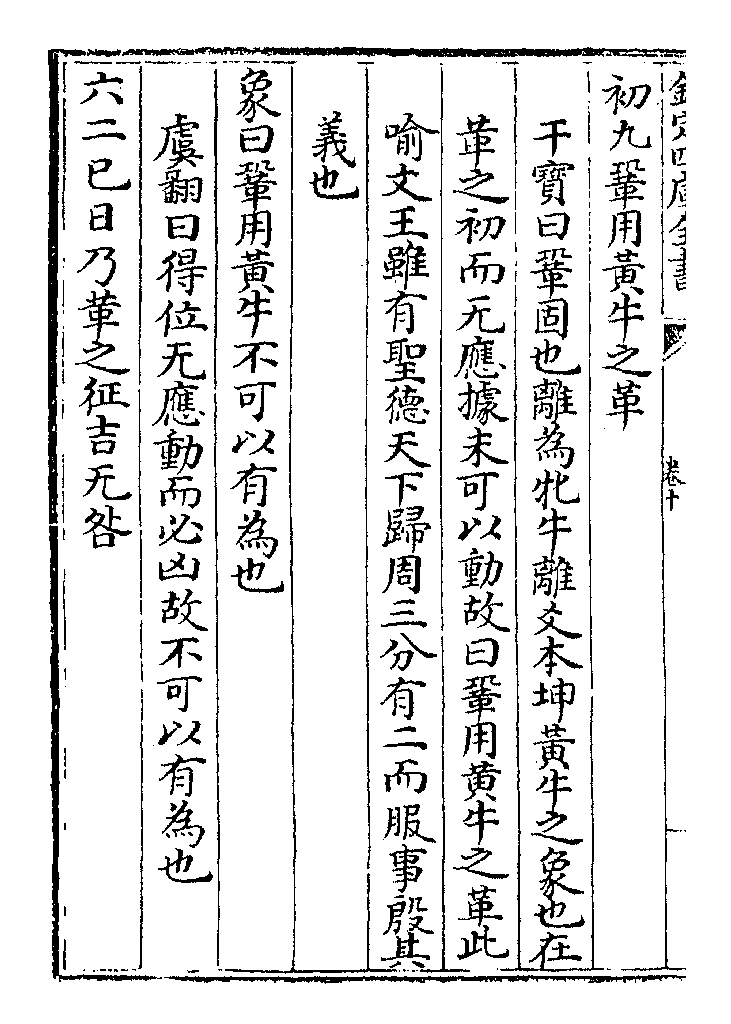 欽定四庫全書
卷十
初九鞏用黃牛之革
干寶曰鞏固也離為牝牛離爻本坤黃牛之象也在
革之初而无應據未可以動故曰鞏用黃牛之革此
喻文王雖有聖德天下歸周三分有二而服事殷其
義也
象曰鞏用黃牛不可以有為也
虞翻曰得位无應動而必凶故不可以有為也
六二巳日乃革之征吉无咎